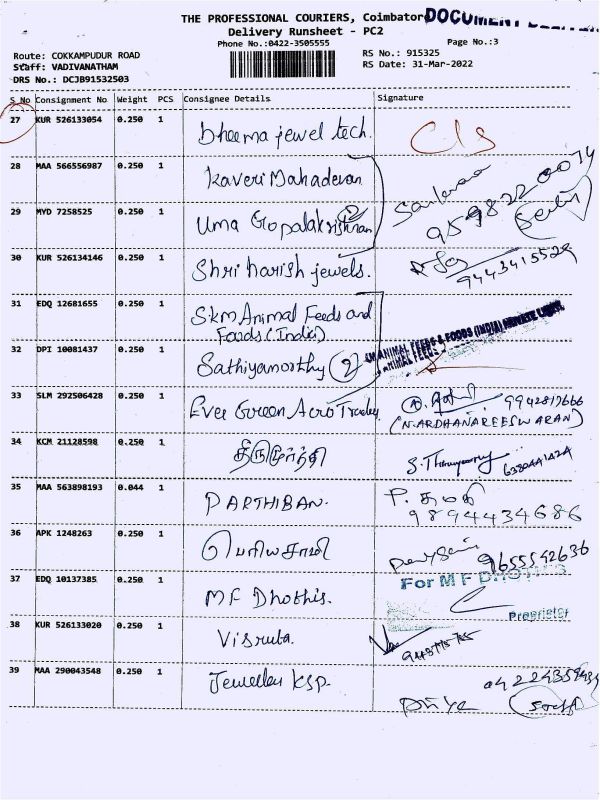 THE PROFESSIONAL COURIERS, Coimbatore
DOCUMENT
Delivery Runsheet - PC2
Phone No.:0422-3505555
Page No.:3
Route: COKKAMPUDUR ROAD
RS No.: 915325
Staff: VADIVANATHAM
RS Date: 31-Mar-2022
DRS No.: DCJB91532503
S No Consignment No Weight PCS Consignee Details Signature
27 KUR 526133054 0.250 1 bheema jewel tech.
28 MAA 566556987 0.250 1 Kaveri Mahadevan
29 MYD 7258525 0.250 1 Uma Gopalakrishnan
30 KUR 526134146 0.250 1 Shri harish jewels. 9443415529
31 EDQ 12681655 0.250 1 Skm Animal Feeds and
Foods (India)
ANIMAL FEEDS & FOODS (INDIA) PRIVATE LIMITED
32 DPI 10081437 0.250 1 Sathiyamorthy 2
33 SLM 292506428 0.250 1 Ever Green Acro Trades 9942817666
(N.ARDHANAREESWARAN)
34 KCM 21128598 0.250 1 திருமூர்த்தி
35 MAA 563898193 0.044 1 PARTHIBAN.
9894434686
36 APK 1248263 0.250 1 பெரியசாமி 9655542636
37 EDQ 10137385 0.250 1 MF Dhothis. For MF DHOTIES
Proprietor
38 KUR 526133020 0.250 1 Visruta.
39 MAA 290043548 0.250 1 Jewellers KSP.
Priya